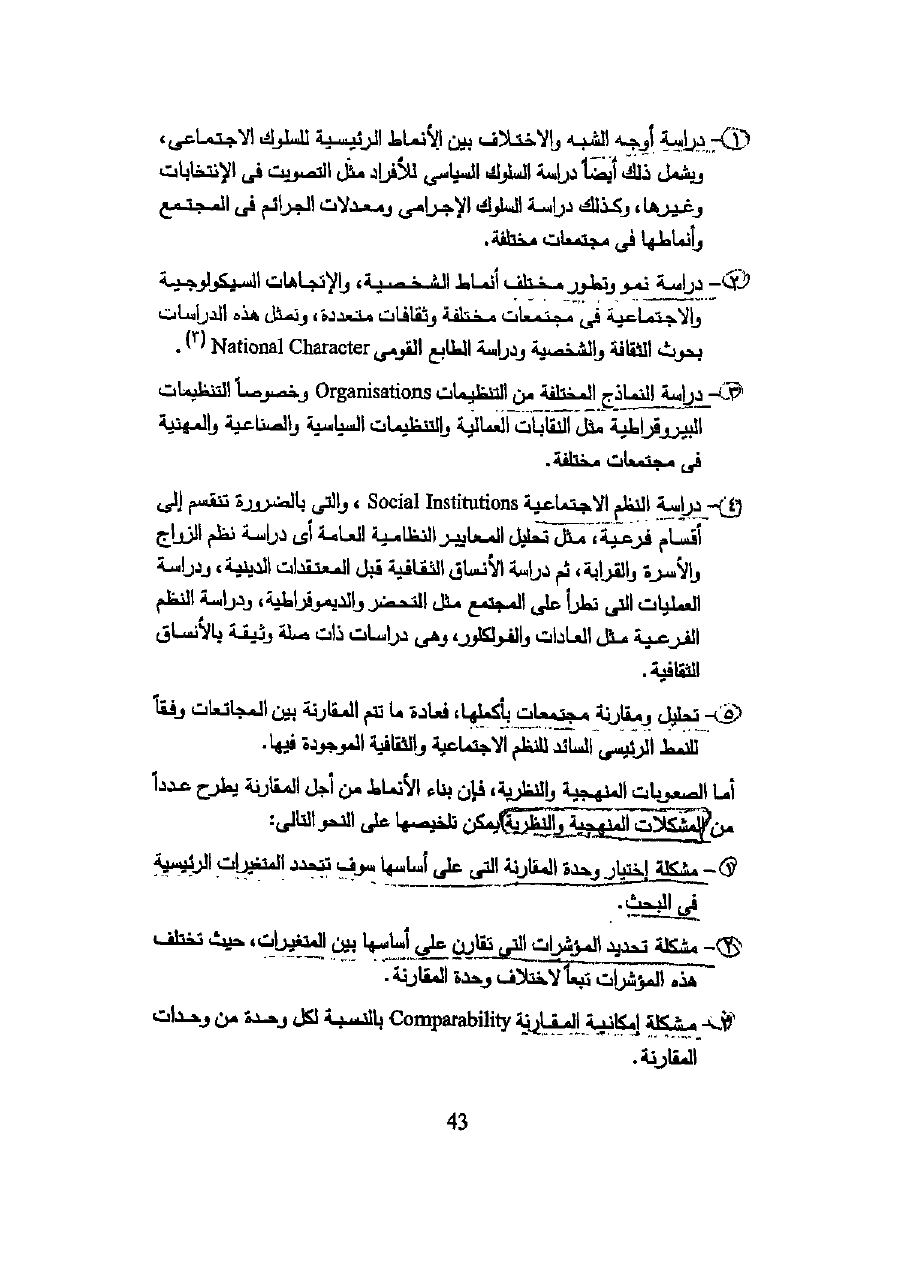 ١- دراسة أوجه الشبه والاختلاف بين الأنماط الرئيسية للسلوك الاجتماعى،
ويشمل ذلك أيضاً دراسة السلوك السياسى للأفراد مثل التصويت فى الإنتخابات
وغيرها، وكذلك دراسة السلوك الإجرامى ومعدلات الجرائم فى المجتمع
وأنماطها فى مجتمعات مختلفة.
٢- دراسة نمو وتطور مختلف أنماط الشخصية، والإتجاهات السيكولوجية
والاجتماعية فى مجتمعات مختلفة وثقافات متعددة، وتمثل هذه الدراسات
بحوث الثقافة والشخصية ودراسة الطابع القومى National Character (٣).
٣- دراسة النماذج المختلفة من التنظيمات Organisations وخصوصاً التنظيمات
البيروقراطية مثل النقابات العمالية والتنظيمات السياسية والصناعية والمهنية
فى مجتمعات مختلفة.
٤- دراسة النظم الاجتماعية Social Institutions ، والتى بالضرورة تنقسم إلى
أقسام فرعية، مثل تحليل المعايير النظامية العامة أى دراسة نظم الزواج
والأسرة والقرابة، ثم دراسة الأنساق الثقافية قبل المعتقدات الدينية، ودراسة
العمليات التى تطرأ على المجتمع مثل التحضر والديموقراطية، ودراسة النظم
الفرعية مثل العادات والفولكلور، وهى دراسات ذات صلة وثيقة بالأنساق
الثقافية.
٥- تحليل ومقارنة مجتمعات بأكملها، فعادة ما تتم المقارنة بين المجاتعات وفقاً
للنمط الرئيسى السائد للنظم الاجتماعية والثقافية الموجودة فيها.
أما الصعوبات المنهجية والنظرية، فإن بناء الأنماط من أجل المقارنة يطرح عدداً
من المشكلات المنهجية والنظرية يمكن تلخيصها على النحو التالى:
١- مشكلة إختيار وحدة المقارنة التى على أساسها سوف تتحدد المتغيرات الرئيسية
فى البحث.
٢- مشكلة تحديد المؤشرات التى تقارن على أساسها بين المتغيرات، حيث تختلف
هذه المؤشرات تبعاً لاختلاف وحدة المقارنة.
٣- مشكلة إمكانية المقارنة Comparability بالنسبة لكل وحدة من وحدات
المقارنة.
43